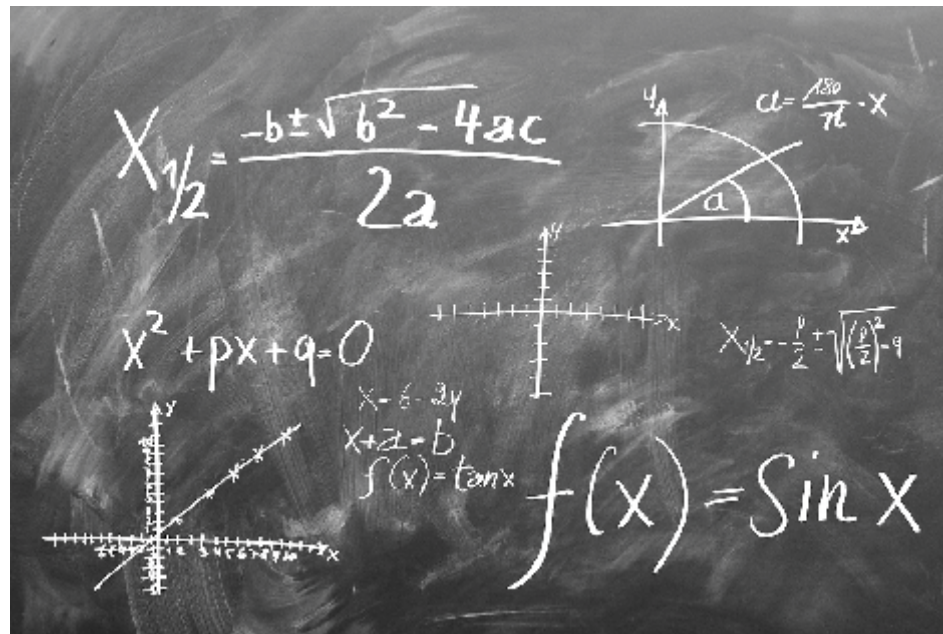 X1/2 = -b±√b² - 4ac / 2a
y
a = 180/π · X
a
x
y
x
x² + px + q = 0
X1/2 = -p/2 ± √(p/2)² - q
x = 6 - 2y
x + a = b
f(x) = tan x
f(x) = Sin x
y
x